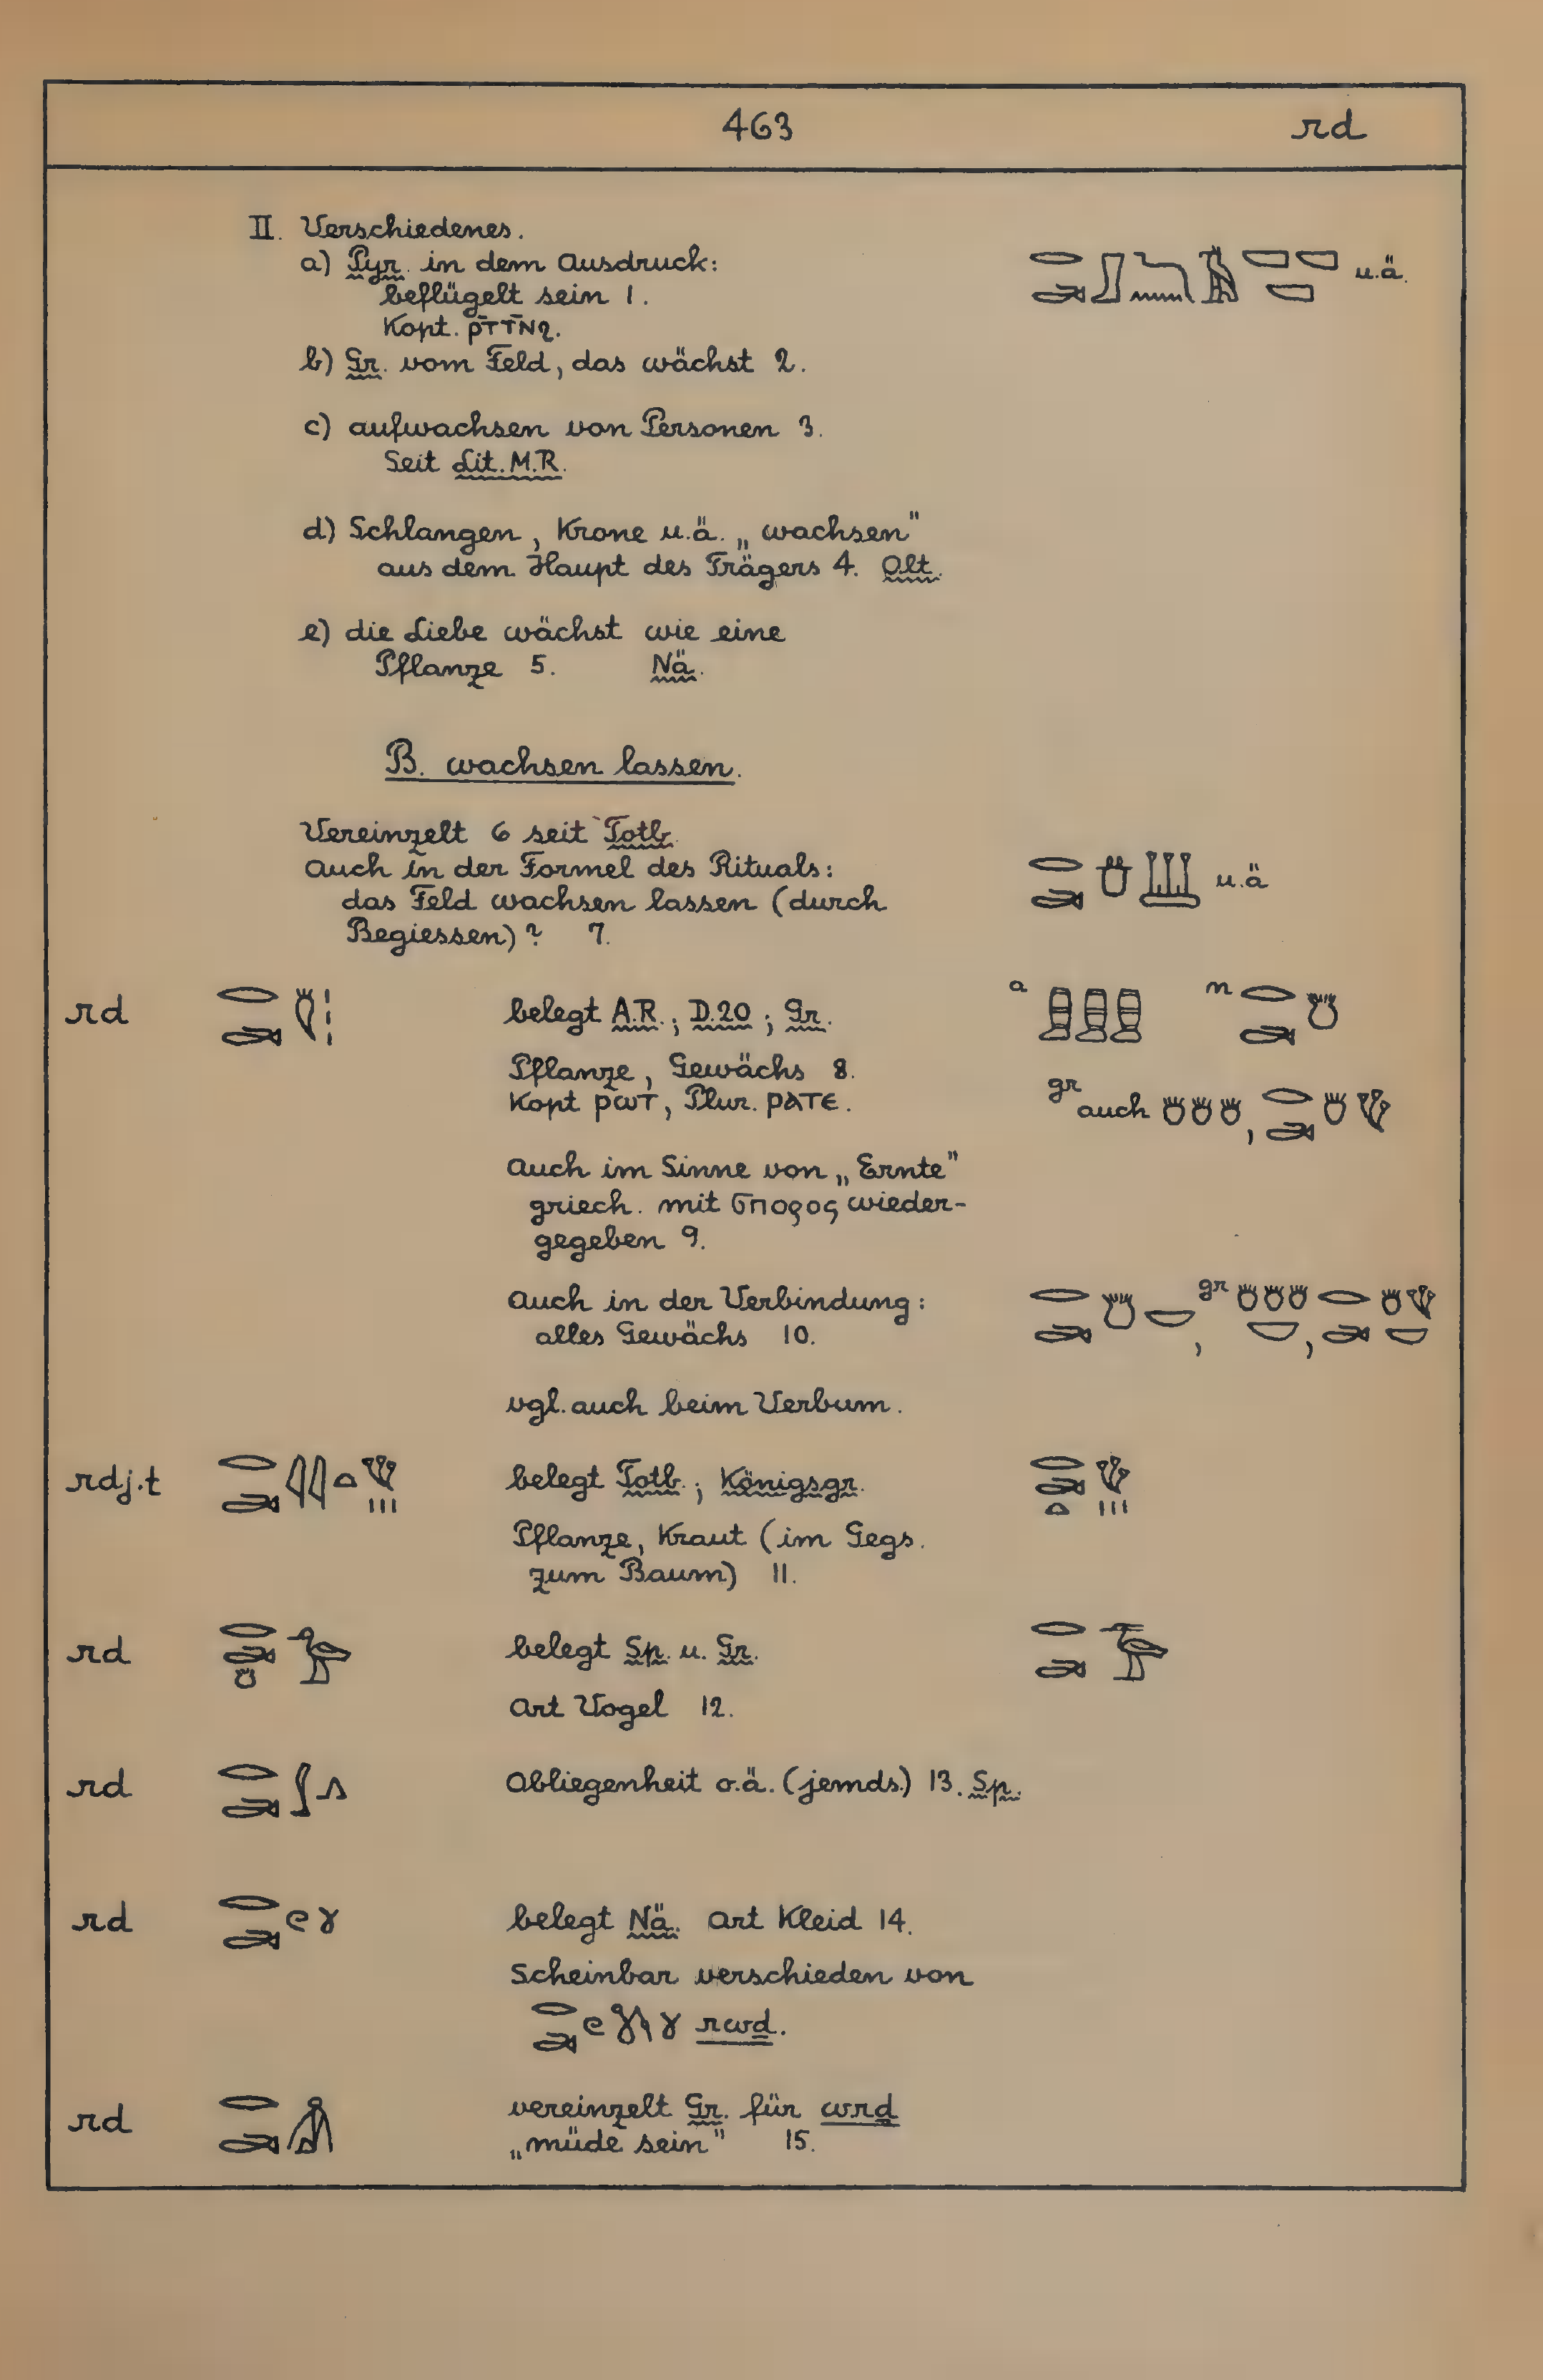 463 rd
II. Verschiedenes.
a) Pyr. in dem Ausdruck: u.ä.
beflügelt sein 1.
Kopt. ⲣ̄ⲧⲧ̄ⲛϩ.
b) Gr. vom Feld, das wächst 2.
c) aufwachsen von Personen 3.
Seit Lit. M.R.
d) Schlangen, Krone u.ä. „wachsen"
aus dem Haupt des Trägers 4. Olt.
e) die Liebe wächst wie eine
Pflanze 5. Nä.
B. wachsen lassen.
Vereinzelt 6 seit Totb.
Auch in der Formel des Rituals: u.ä
das Feld wachsen lassen (durch
Begiessen)? 7.
rd belegt A.R.; D.20; Gr. a n
Pflanze, Gewächs 8.
Kopt ⲣⲱⲧ, Plur. ⲣⲁⲧⲉ. gr auch
Auch im Sinne von „Ernte"
griech. mit σπορος wieder-
gegeben 9.
Auch in der Verbindung: gr
alles Gewächs 10.
vgl. auch beim Verbum.
rdj.t belegt Totb.; Königsgr.
Pflanze, Kraut (im Gegs.
zum Baum) 11.
rd belegt Sp. u. Gr.
Art Vogel 12.
rd Obliegenheit o.ä. (jemds.) 13. Sp.
rd belegt Nä. Art Kleid 14.
Scheinbar verschieden von
rwḏ.
rd vereinzelt Gr. für wrḏ
„müde sein" 15.